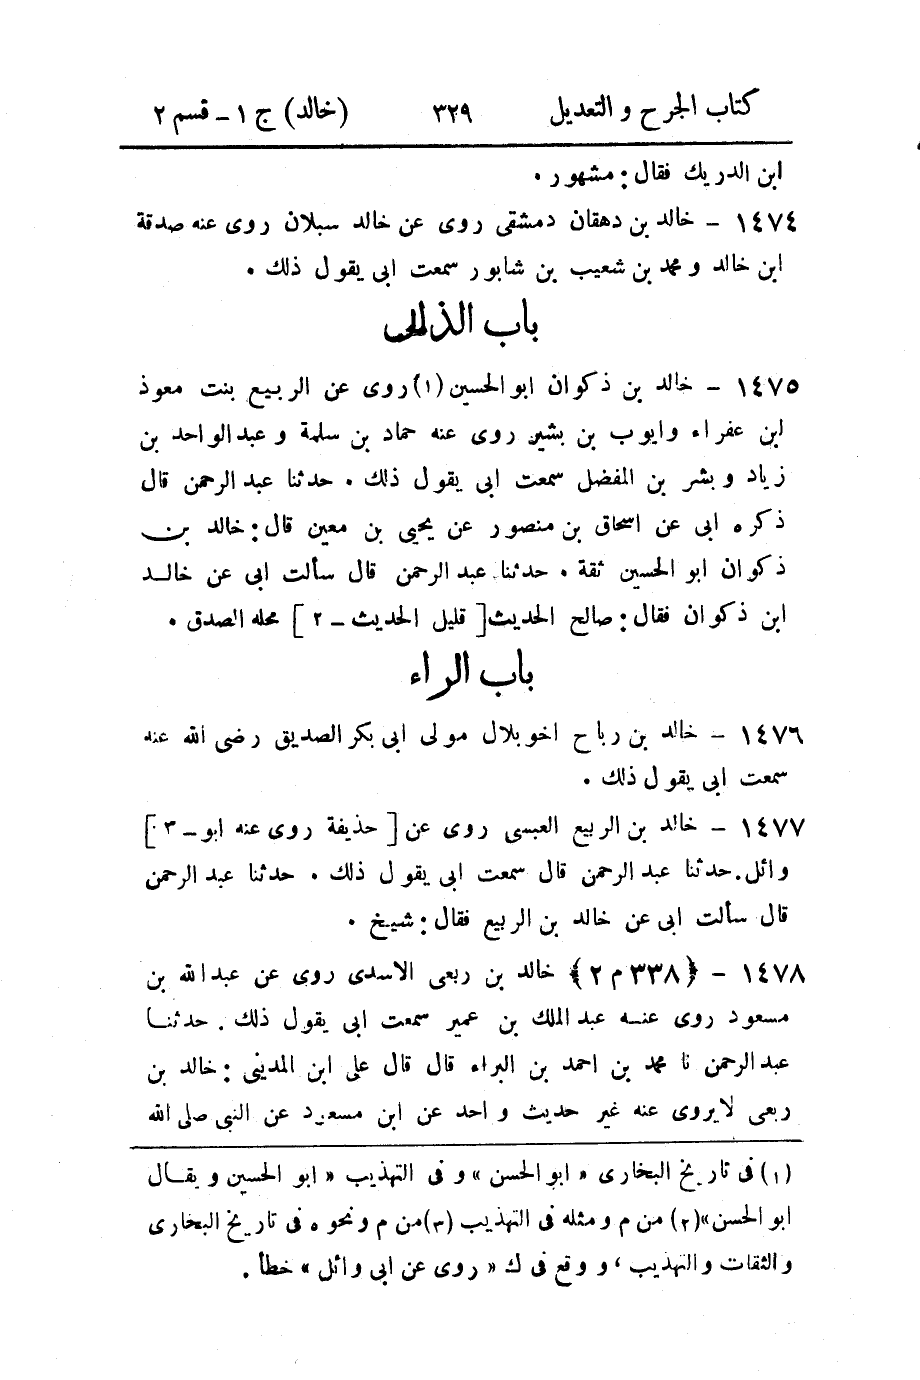 كتاب الجرح و التعديل ٣٢٩ (خالد) ج ١ ـ قسم ٢
ابن الدريك فقال : مشهور .
١٤٧٤ - خالد بن دهقان دمشقى روى عن خالد سبلان روى عنه صدقة
ابن خالد و محمد بن شعيب بن شابور سمعت ابى يقول ذلك .
باب الذال
١٤٧٥ - خالد بن ذكوان ابو الحسين (١) روى عن الربيع بنت معوذ
ابن عفراء وايوب بن بشير روى عنه حماد بن سلمة و عبد الواحد بن
زياد و بشر بن المفضل سمعت ابى يقول ذلك . حدثنا عبد الرحمن قال
ذكره ابى عن اسحاق بن منصور عن يحيى بن معين قال : خالد بن
ذكوان ابو الحسين ثقة . حدثنا عبد الرحمن قال سألت ابى عن خالد
ابن ذكوان فقال : صالح الحديث [ قليل الحديث - ٢ ] محله الصدق .
باب الراء
١٤٧٦ - خالد بن رباح اخو بلال مولى ابى بكر الصديق رضى الله عنه
سمعت ابى يقول ذلك .
١٤٧٧ - خالد بن الربيع العبسى روى عن [ حذيفة روى عنه ابو - ٣ ]
وائل . حدثنا عبد الرحمن قال سمعت ابى يقول ذلك . حدثنا عبد الرحمن
قال سألت ابى عن خالد بن الربيع فقال : شيخ .
١٤٧٨ - ﴿٣٣٨ م ٢﴾ خالد بن ربعى الاسدى روى عن عبد الله بن
مسعود روى عنه عبد الملك بن عمير سمعت ابى يقول ذلك . حدثنا
عبد الرحمن نا محمد بن احمد بن البراء قال قال على ابن المدينى : خالد بن
ربعى لا يروى عنه غير حديث واحد عن ابن مسعود عن النبى صلى الله
(١) فى تاريخ البخارى « ابو الحسن » و فى التهذيب « ابو الحسين و يقال
ابو الحسن » (٢) من م و مثله فى التهذيب (٣) من م و نحوه فى تاريخ البخارى
والثقات والتهذيب ، و وقع فى ك « روى عن ابى وائل » خطأ .